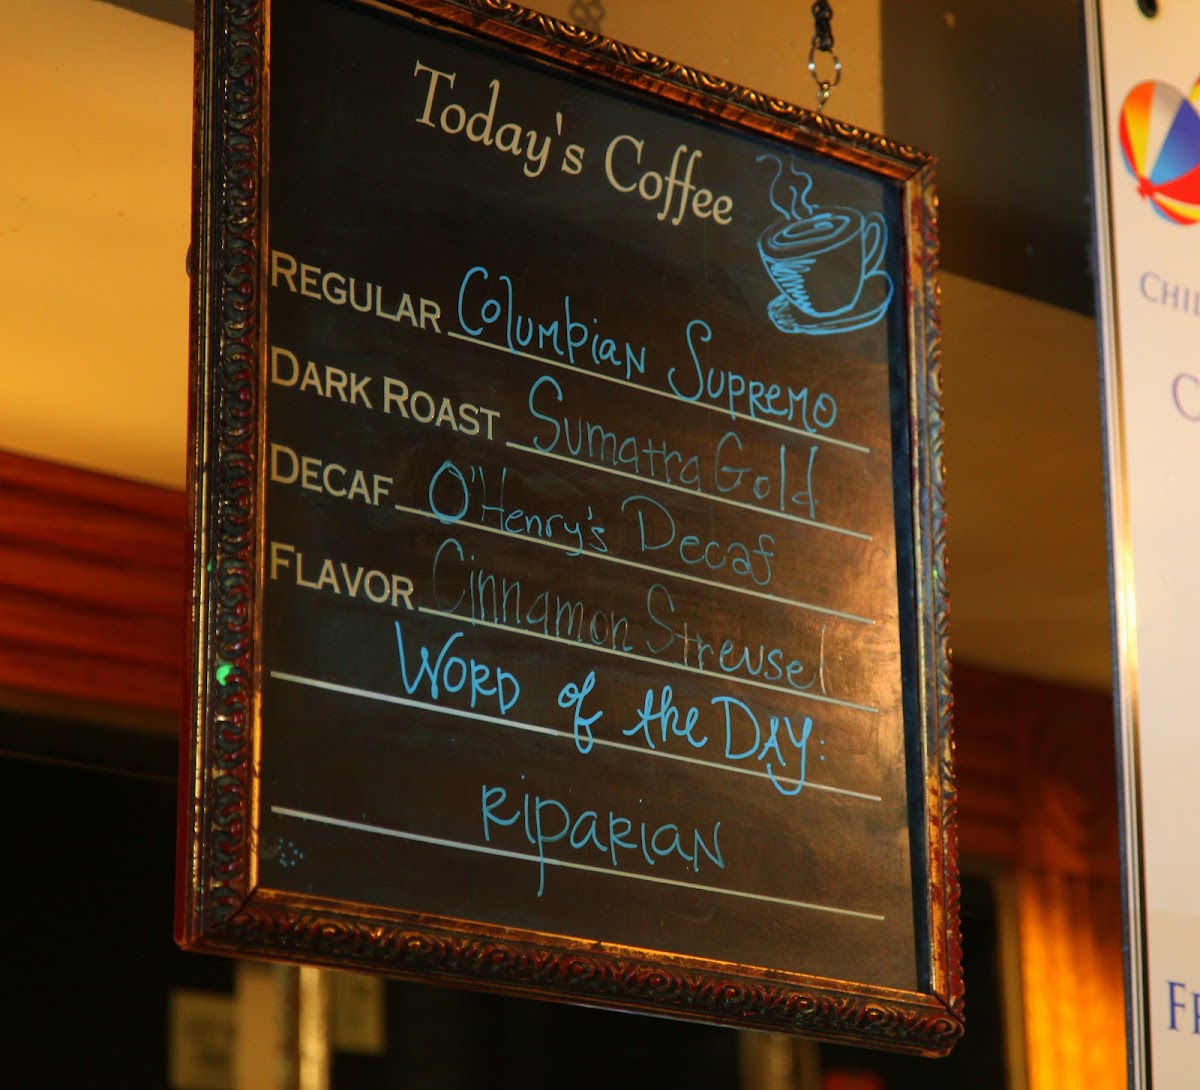 Today's Coffee
REGULAR Columbian Supremo
DARK ROAST Sumatra Gold
DECAF O'Henry's Decaf
FLAVOR Cinnamon Streusel
WORD of the DAY:
RIPARIAN